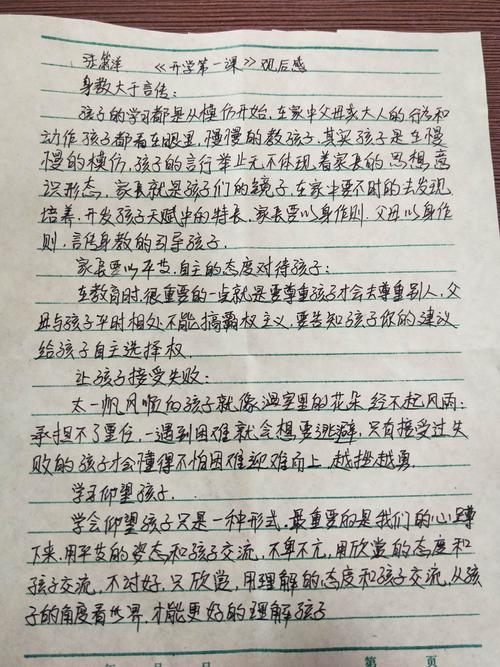 《开学第一课》观后感
身教大于言传：
孩子的学习都是从模仿开始，在家中父母亲大人的行为和
动作孩子都看在眼里，慢慢的教孩子，其实孩子是在慢
慢的模仿，孩子的言行举止无不体现着家长的思想意
识形态，家长就是孩子们的镜子，在家中要不时的去发现
培养，开发孩子天赋中的特长，家长要以身作则，父母以身作
则，言传身教的引导孩子。
家长要以平等、自主的态度对待孩子：
在教育时，很重要的一点就是要尊重孩子才会去尊重别人，父
母与孩子平时相处不能搞霸权主义，要告知孩子你的建议
给孩子自主选择权。
让孩子接受失败：
太一帆风顺的孩子就像温室里的花朵经不起风雨；
承担不了重任，一遇到困难就会想要逃避，只有接受过失
败的孩子才会懂得不怕困难迎难而上，越挫越勇。
学习仰望孩子.
学会仰望孩子只是一种形式，最重要的是我们的心蹲
下来，用平等的姿态和孩子交流，不卑不亢，用欣赏的态度和
孩子交流，不讨好，只欣赏，用理解的态度和孩子交流，从孩
子的角度看世界，才能更好的理解孩子
年 月 日 第 页